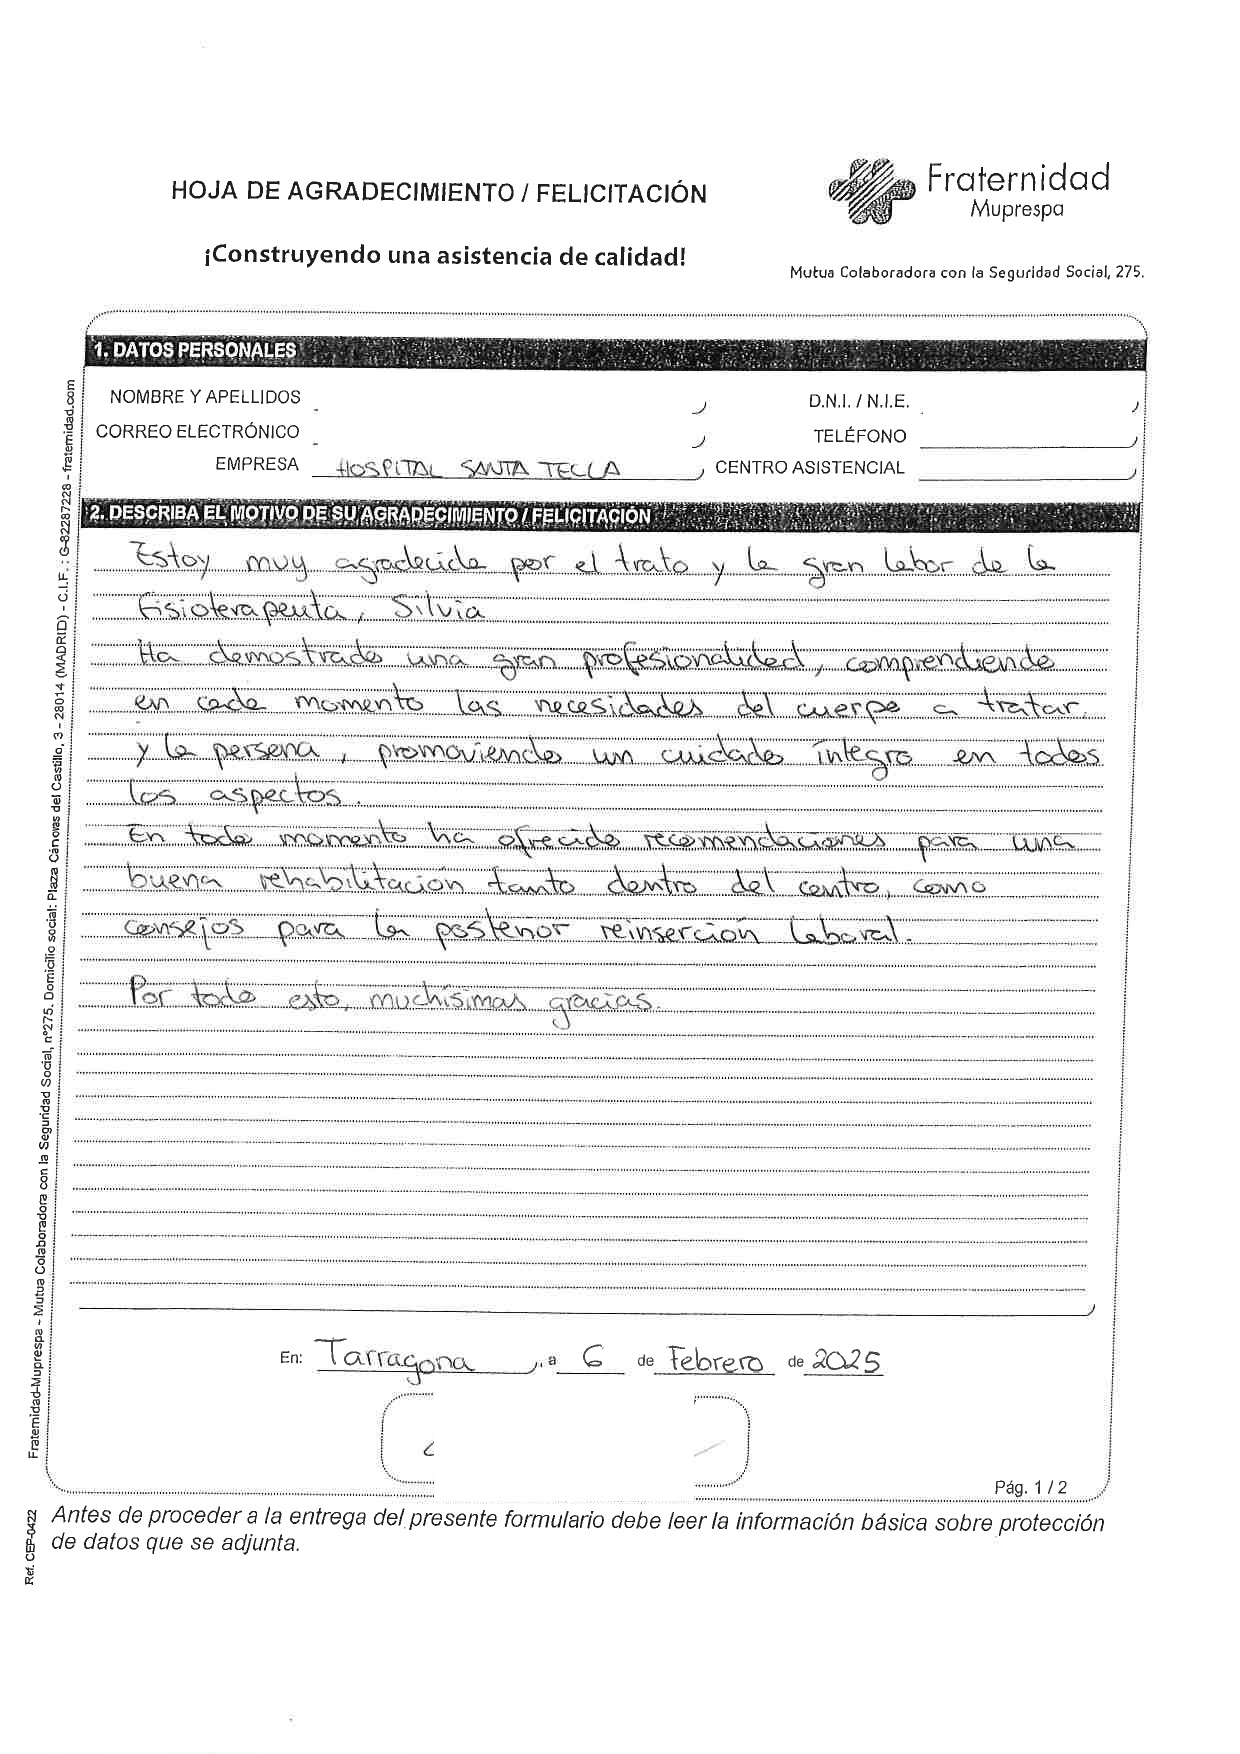 HOJA DE AGRADECIMIENTO / FELICITACIÓN
Fraternidad
Muprespa
¡Construyendo una asistencia de calidad!
Mutua Colaboradora con la Seguridad Social, 275.
1. DATOS PERSONALES
NOMBRE Y APELLIDOS
D.N.I. / N.I.E.
CORREO ELECTRÓNICO
TELÉFONO
EMPRESA HOSPITAL SANTA TECLA CENTRO ASISTENCIAL
2. DESCRIBA EL MOTIVO DE SU AGRADECIMIENTO / FELICITACIÓN
Estoy muy agradecida por el trato y la gran labor de la
fisioterapeuta, Silvia
Ha demostrado una gran profesionalidad, comprendiendo
en cada momento las necesidades del cuerpo a tratar
y la persona, promoviendo un cuidado íntegro en todos
los aspectos.
En todo momento ha ofrecido recomendaciones para una
buena rehabilitación tanto dentro del centro, como
consejos para la posterior reinserción laboral.
Por todo esto, muchísimas gracias.
En: Tarragona, a 6 de Febrero de 2025
Pág. 1 / 2
Antes de proceder a la entrega del presente formulario debe leer la información básica sobre protección
de datos que se adjunta.
Fraternidad-Muprespa - Mutua Colaboradora con la Seguridad Social, nº275. Domicilio social: Plaza Cánovas del Castillo, 3 - 28014 (MADRID) - C.I.F. : G-82287228 - fraternidad.com
Ref. CEP-0422